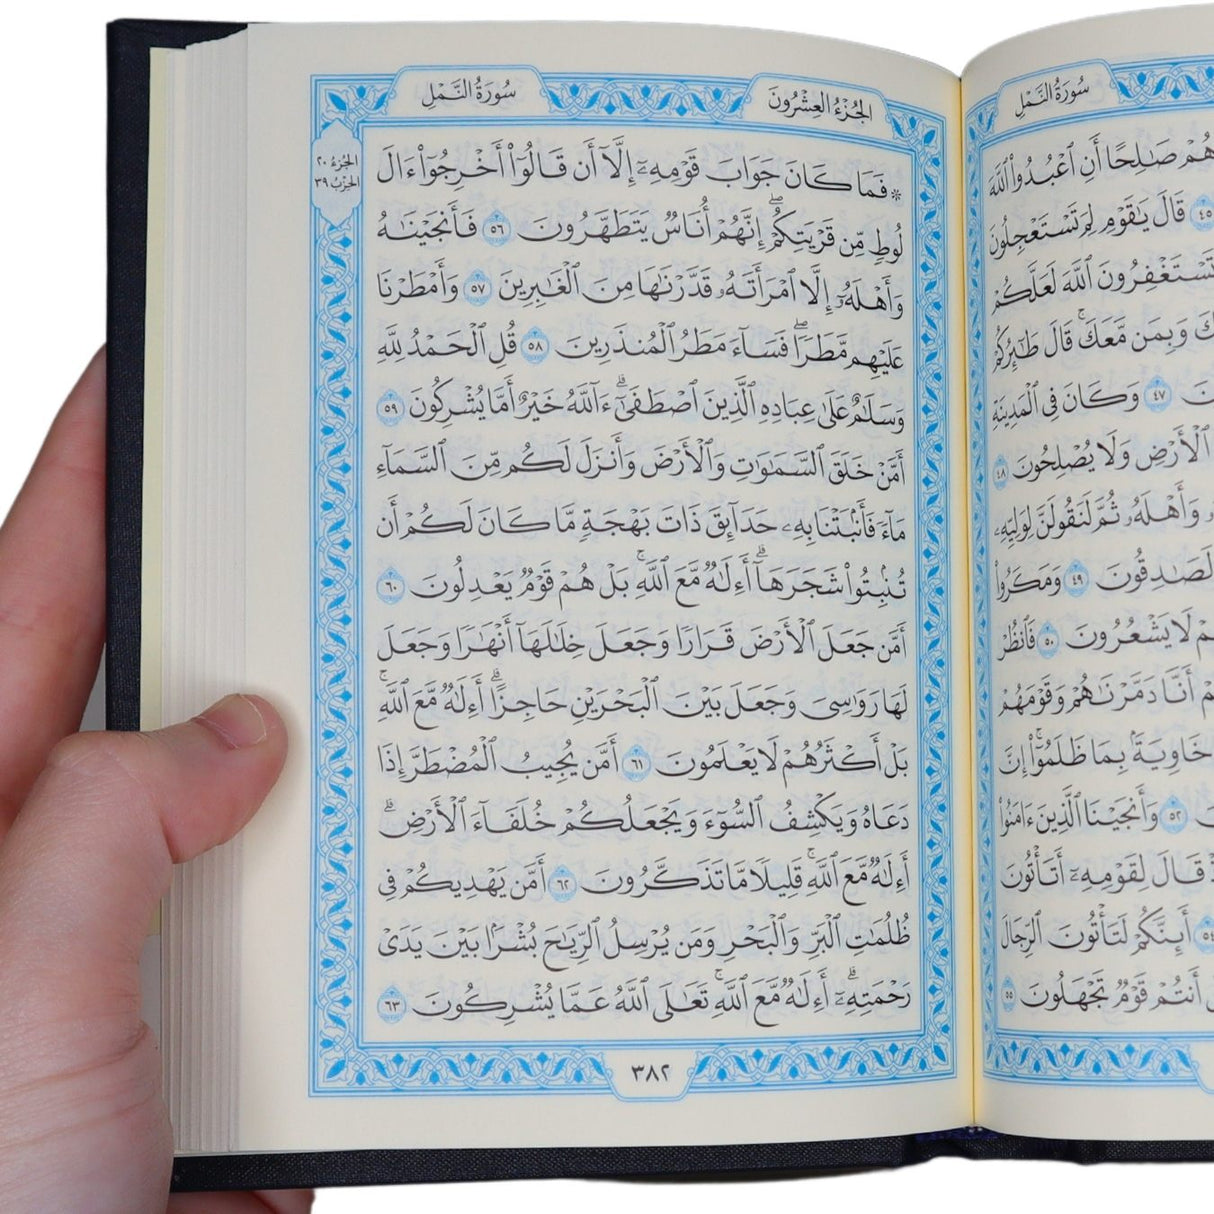 سُورَةُ النَّمْلِ
الجُزْءُ العِشْرُونَ
الجُزْءُ ٢٠
الحِزْبُ ٣٩
۞ فَمَا كَانَ جَوَابَ قَوْمِهِۦٓ إِلَّآ أَن قَالُوٓا۟ أَخْرِجُوٓا۟ ءَالَ
لُوطٍ مِّن قَرْيَتِكُمْ ۖ إِنَّهُمْ أُنَاسٌ يَتَطَهَّرُونَ ٥٦ فَأَنجَيْنَـٰهُ
وَأَهْلَهُۥٓ إِلَّا ٱمْرَأَتَهُۥ قَدَّرْنَـٰهَا مِنَ ٱلْغَـٰبِرِينَ ٥٧ وَأَمْطَرْنَا
عَلَيْهِم مَّطَرًا ۖ فَسَآءَ مَطَرُ ٱلْمُنذَرِينَ ٥٨ قُلِ ٱلْحَمْدُ لِلَّهِ
وَسَلَـٰمٌ عَلَىٰ عِبَادِهِ ٱلَّذِينَ ٱصْطَفَىٰٓ ۗ ءَآللَّهُ خَيْرٌ أَمَّا يُشْرِكُونَ ٥٩
أَمَّنْ خَلَقَ ٱلسَّمَـٰوَٰتِ وَٱلْأَرْضَ وَأَنزَلَ لَكُم مِّنَ ٱلسَّمَآءِ
مَآءً فَأَنۢبَتْنَا بِهِۦ حَدَآئِقَ ذَاتَ بَهْجَةٍ مَّا كَانَ لَكُمْ أَن
تُنۢبِتُوا۟ شَجَرَهَآ ۗ أَءِلَـٰهٌ مَّعَ ٱللَّهِ ۚ بَلْ هُمْ قَوْمٌ يَعْدِلُونَ ٦٠
أَمَّن جَعَلَ ٱلْأَرْضَ قَرَارًا وَجَعَلَ خِلَـٰلَهَآ أَنْهَـٰرًا وَجَعَلَ
لَهَا رَوَٰسِىَ وَجَعَلَ بَيْنَ ٱلْبَحْرَيْنِ حَاجِزًا ۗ أَءِلَـٰهٌ مَّعَ ٱللَّهِ ۚ
بَلْ أَكْثَرُهُمْ لَا يَعْلَمُونَ ٦١ أَمَّن يُجِيبُ ٱلْمُضْطَرَّ إِذَا
دَعَاهُ وَيَكْشِفُ ٱلسُّوٓءَ وَيَجْعَلُكُمْ خُلَفَآءَ ٱلْأَرْضِ ۗ
أَءِلَـٰهٌ مَّعَ ٱللَّهِ ۚ قَلِيلًا مَّا تَذَكَّرُونَ ٦٢ أَمَّن يَهْدِيكُمْ فِى
ظُلُمَـٰتِ ٱلْبَرِّ وَٱلْبَحْرِ وَمَن يُرْسِلُ ٱلرِّيَـٰحَ بُشْرًۢا بَيْنَ يَدَىْ
رَحْمَتِهِۦٓ ۗ أَءِلَـٰهٌ مَّعَ ٱللَّهِ ۚ تَعَـٰلَى ٱللَّهُ عَمَّا يُشْرِكُونَ ٦٣
٣٨٢
سُورَةُ النَّمْلِ
صَـٰلِحًا أَنِ ٱعْبُدُوا۟ ٱللَّهَ
٤٥ قَالَ يَـٰقَوْمِ لِمَ تَسْتَعْجِلُونَ
تَسْتَغْفِرُونَ ٱللَّهَ لَعَلَّكُمْ
وَبِمَن مَّعَكَ ۚ قَالَ طَـٰٓئِرُكُمْ
٤٧ وَكَانَ فِى ٱلْمَدِينَةِ
ٱلْأَرْضِ وَلَا يُصْلِحُونَ ٤٨
وَأَهْلَهُۥ ثُمَّ لَنَقُولَنَّ لِوَلِيِّهِۦ
لَصَـٰدِقُونَ ٤٩ وَمَكَرُوا۟
لَا يَشْعُرُونَ ٥٠ فَٱنظُرْ
أَنَّا دَمَّرْنَـٰهُمْ وَقَوْمَهُمْ
خَاوِيَةًۢ بِمَا ظَلَمُوٓا۟ ۗ إِنَّ
٥٢ وَأَنجَيْنَا ٱلَّذِينَ ءَامَنُوا۟
قَالَ لِقَوْمِهِۦٓ أَتَأْتُونَ
٥٤ أَئِنَّكُمْ لَتَأْتُونَ ٱلرِّجَالَ
أَنتُمْ قَوْمٌ تَجْهَلُونَ ٥٥